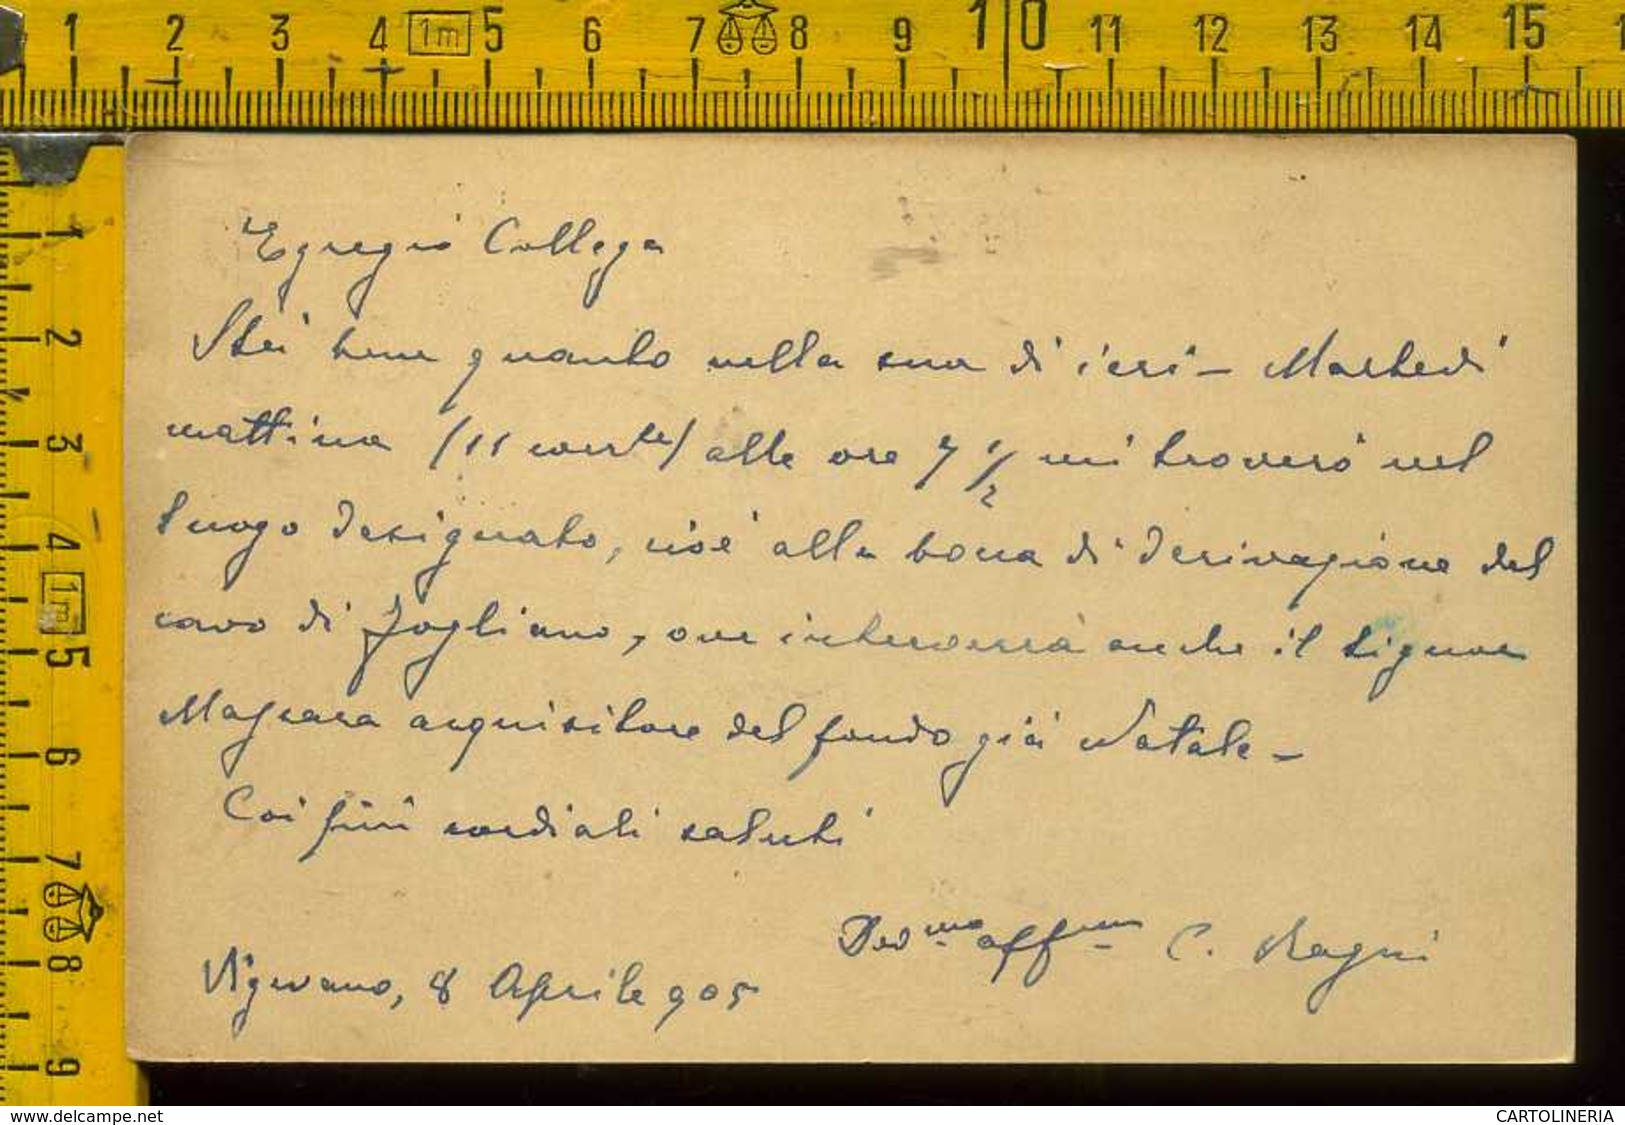 1 2 3 4 1m 5 6 7 8 9 10 11 12 13 14 15 1
1 2 3 4 1m 5 6 7 8 9
Egregio Collega
Sta bene quanto nella sua di ieri - Martedì
mattina (11 corr.te) alle ore 7 1/2 mi troverò nel
luogo designato, cioè alla bocca di derivazione del
cavo di Fogliano, ove interverrà anche il signor
acquisitore del fondo già Natale -
Coi più cordiali saluti
Dev.mo aff.mo C. Magni
Vigevano, 8 Aprile 905
www.delcampe.net
CARTOLINERIA